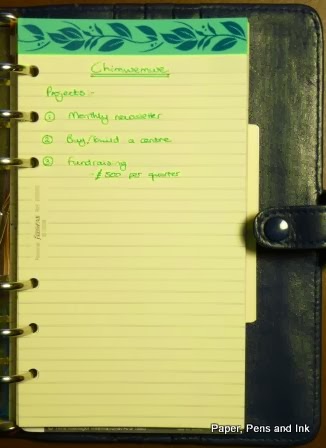 Chimwemwe
Projects :-
① Monthly newsletter
② Buy/build a centre
③ Fundraising
- £500 per quarter
filofax
Paper, Pens and Ink